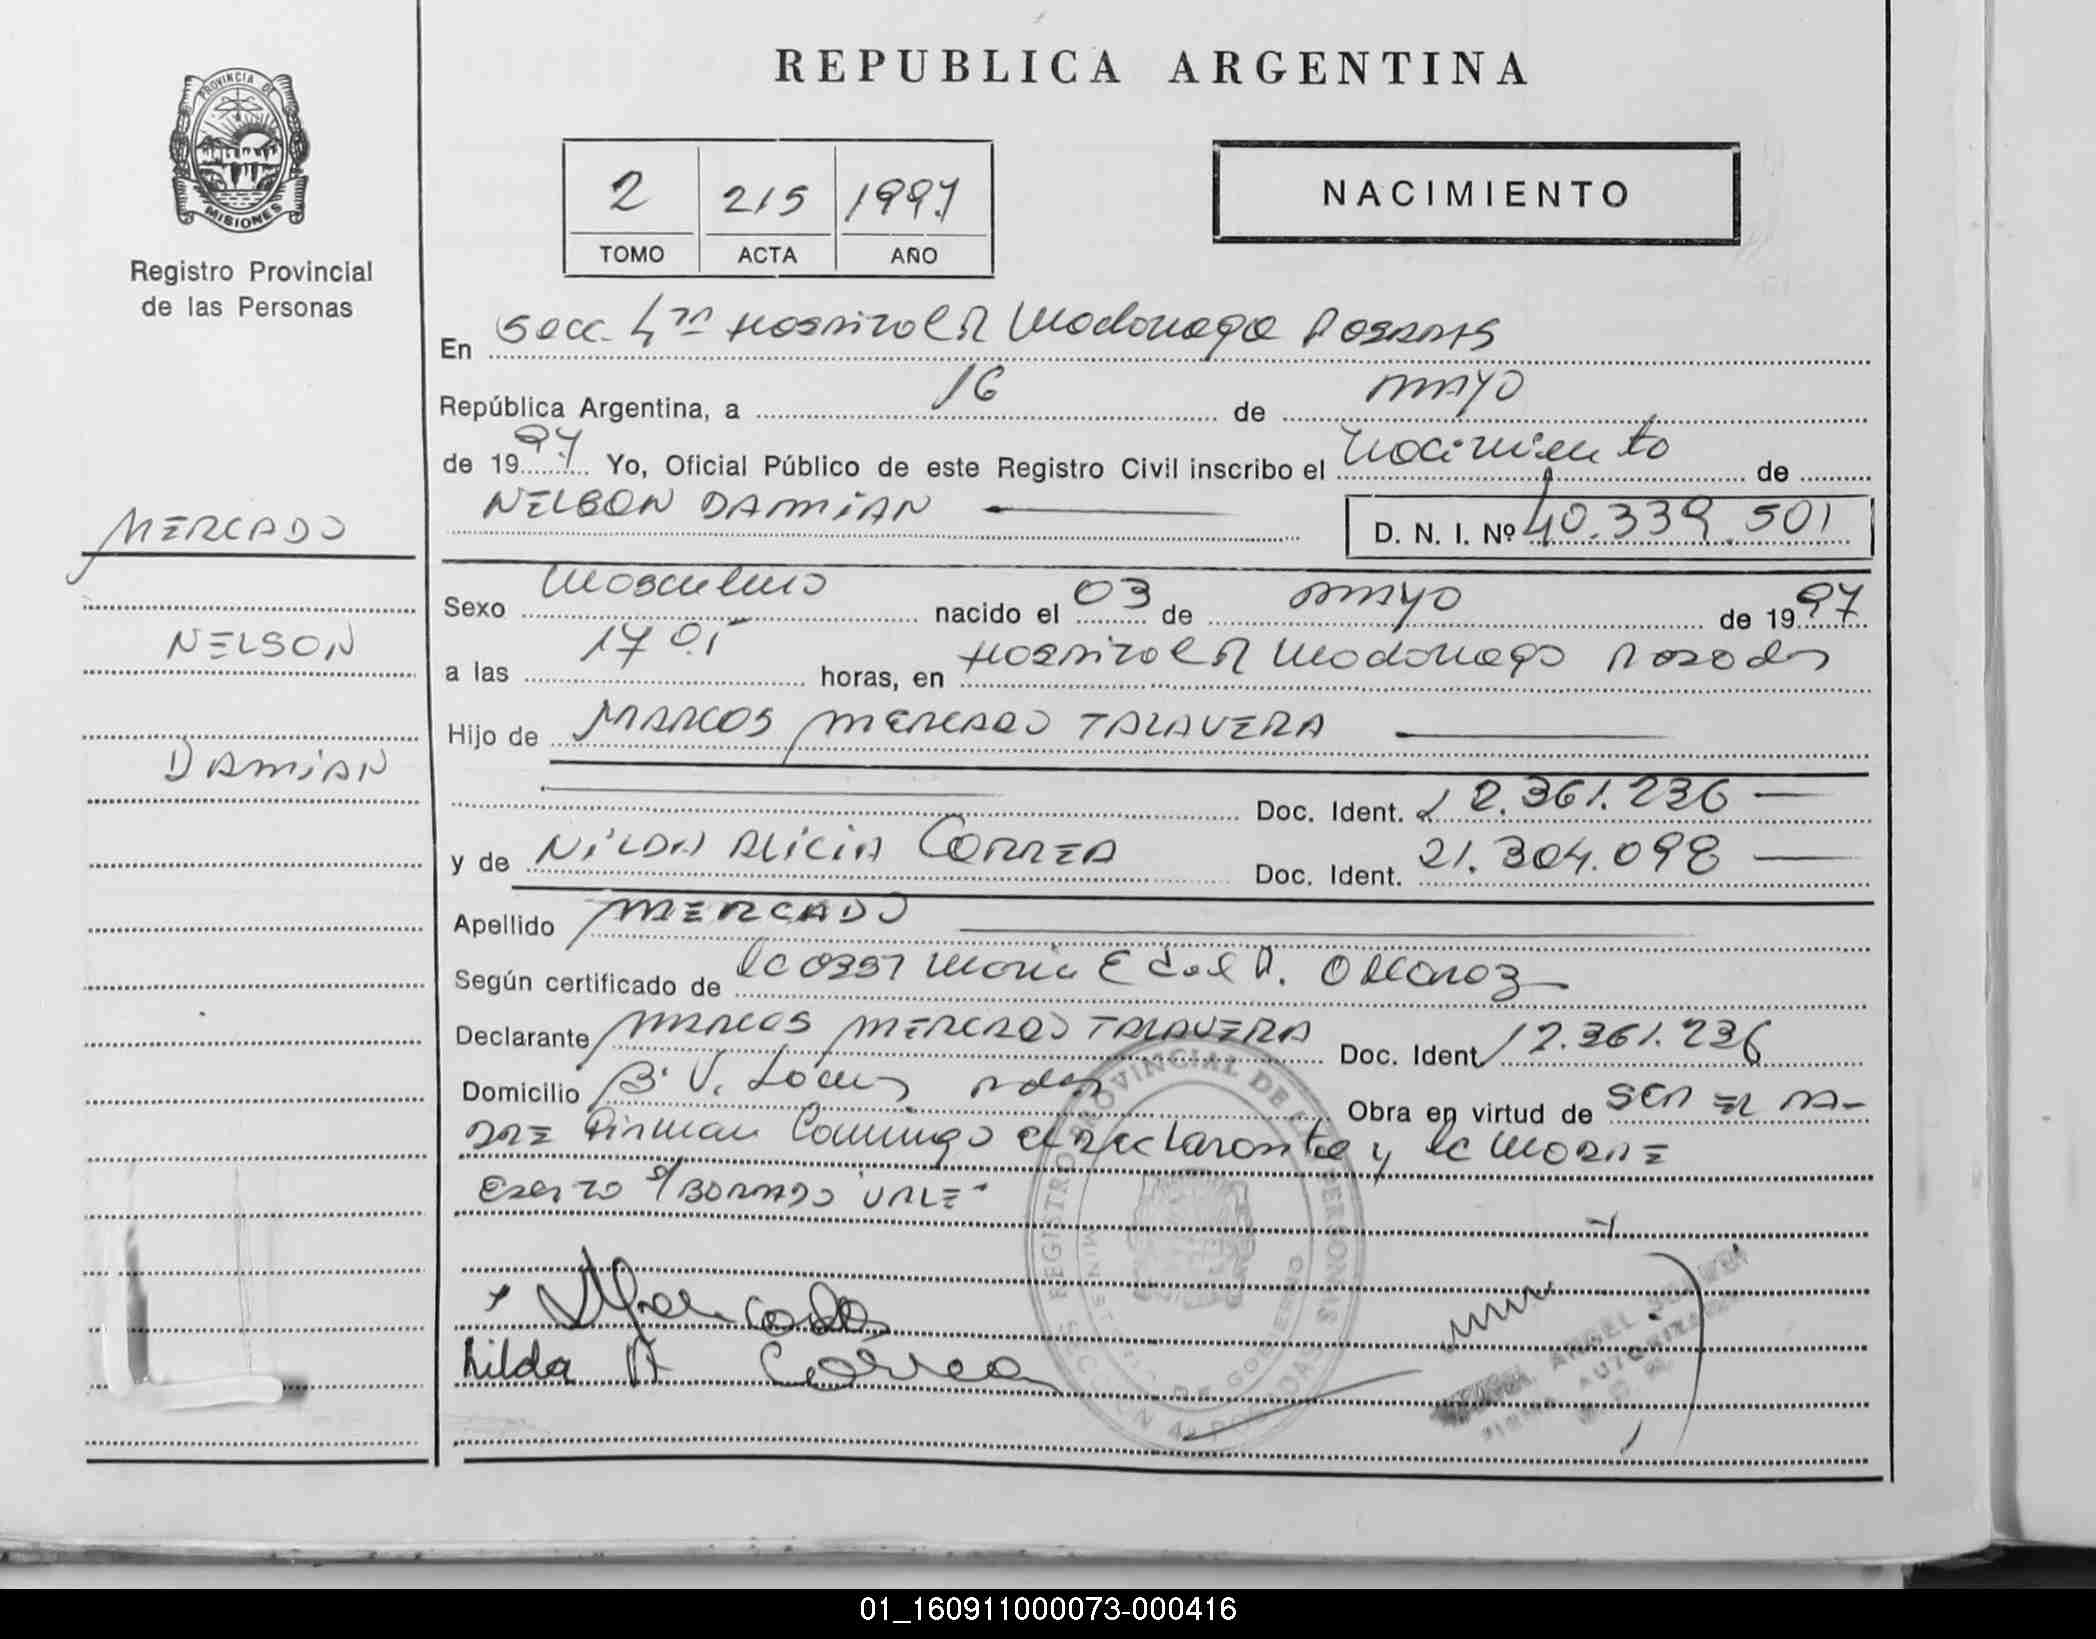 REPUBLICA ARGENTINA
PROVINCIA DE
MISIONES
Registro Provincial
de las Personas
2 215 1997
TOMO ACTA AÑO
NACIMIENTO
En Secc. 4ta Hospital R Madariaga Posadas
República Argentina, a 16 de mayo
de 1997 Yo, Oficial Público de este Registro Civil inscribo el Nacimiento de
NELSON DAMIAN
D. N. I. Nº 40.339.501
MERCADO
NELSON
DAMIAN
Sexo Masculino nacido el 03 de mayo de 1997
a las 17 05 horas, en Hospital R Madariaga Posadas
Hijo de MARCOS MERCADO TALAVERA
Doc. Ident. 12.361.236
y de NILDA ALICIA CORREA Doc. Ident. 21.304.098
Apellido MERCADO
Según certificado de la Obst Maria E d. de
Declarante MARCOS MERCADO TALAVERA Doc. Ident 12.361.236
Domicilio B. V. Pdas Obra en virtud de SER EL PA-
DRE Firman Conmigo el Declarante y la MADRE
S/BORRADO VALE
Mercado
Nilda A Correa
REGISTRO PROVINCIAL DE LAS PERSONAS
MINISTERIO DE GOBIERNO
ANGEL
FIRMA AUTORIZADA
01_160911000073-000416